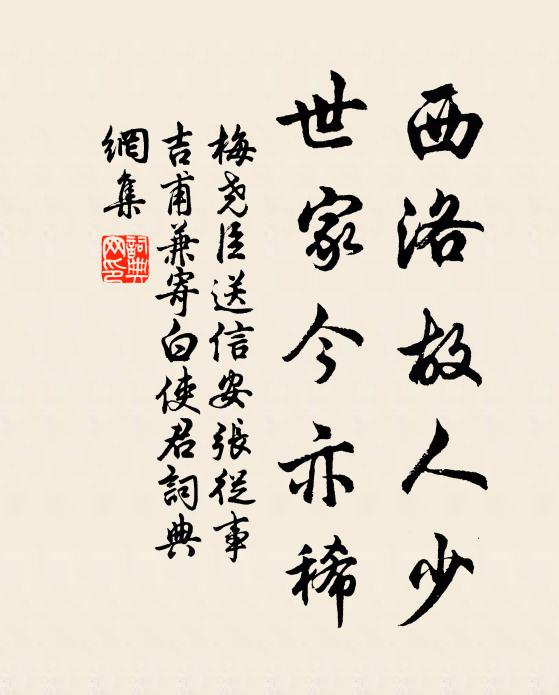 西洛故人少
世家今亦稀
梅尧臣送信安張從事
吉甫兼寄白使君詞典
網集
詞典网印